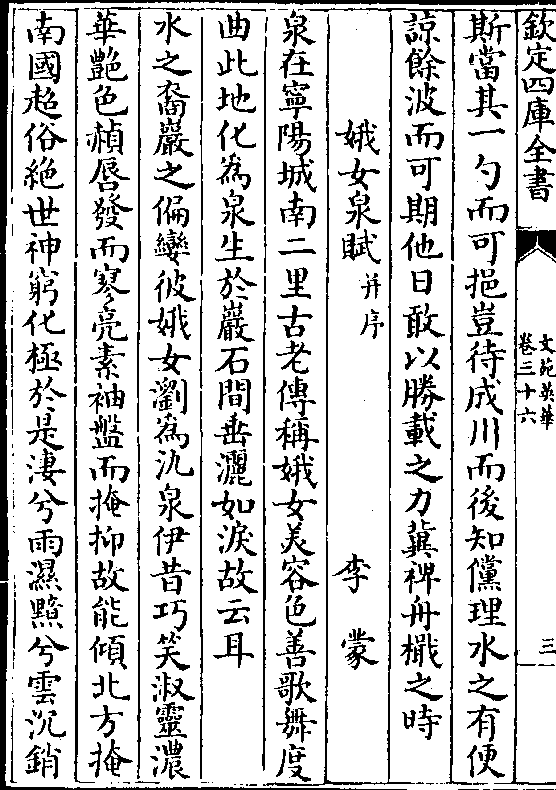 欽定四庫全書
文苑英華
卷三十六
三
斯當其一勺而可挹豈待成川而後知儻理水之有便
諒餘波而可期他日敢以勝載之力冀裨舟檝之時
娥女泉賦并序 李蒙
泉在寧陽城南二里古老傳稱娥女美容色善歌舞度
曲此地化為泉生於巖石間垂灑如淚故云耳
水之裔巖之偏孌彼娥女瀏為氿泉伊昔巧笑淑靈濃
華艷色赬唇發而寥亮素袖盤而掩抑故能傾北方掩
南國超俗絶世神窮化極於是淒兮雨濕黯兮雲沉銷